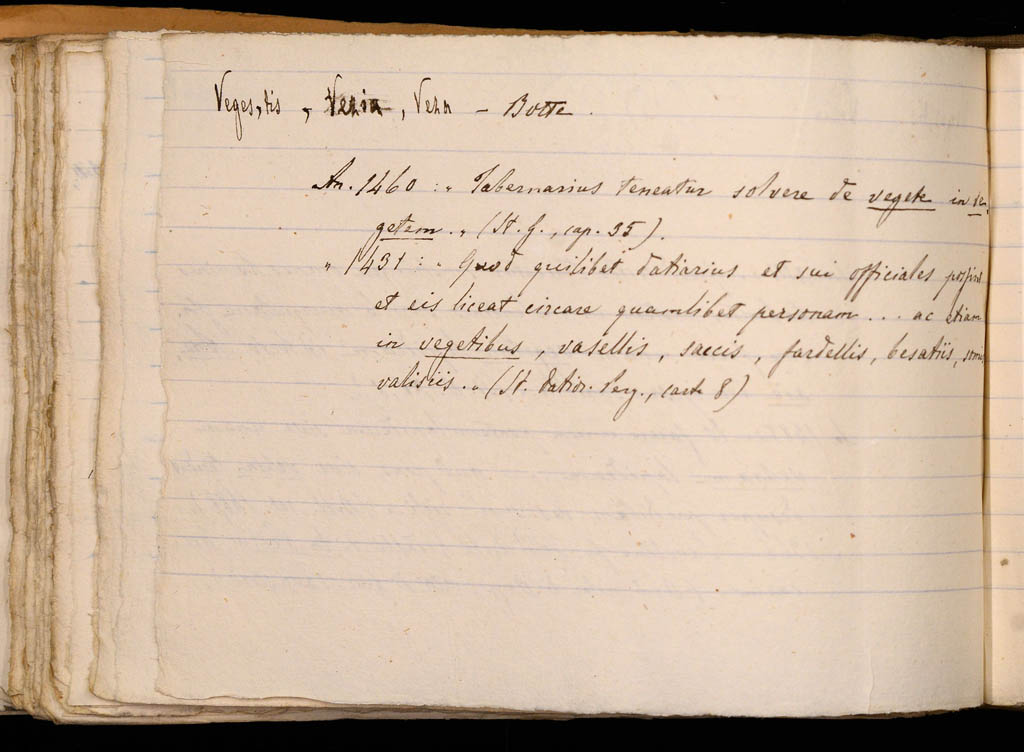 Veges, tis, Vezia, Veza – Botte.
An. 1460 : „ Tabernarius teneatur solvere de vegete in ve-
getem. „ (St. G., cap. 35).
„ 1431 : „ Quod quilibet datiarius et sui officiales possint
et eis liceat circare quamlibet personam... ac etiam
in vegetibus, vasellis, saccis, fardellis, besatiis,
valisiis. „ (St. datior. Berg., carte 8)